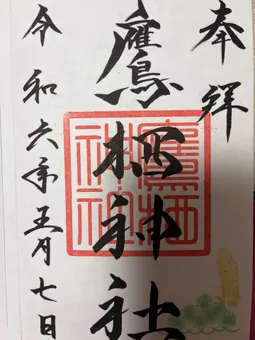 奉拝
鷹栖神社
令和六年五月七日
鷹栖神社